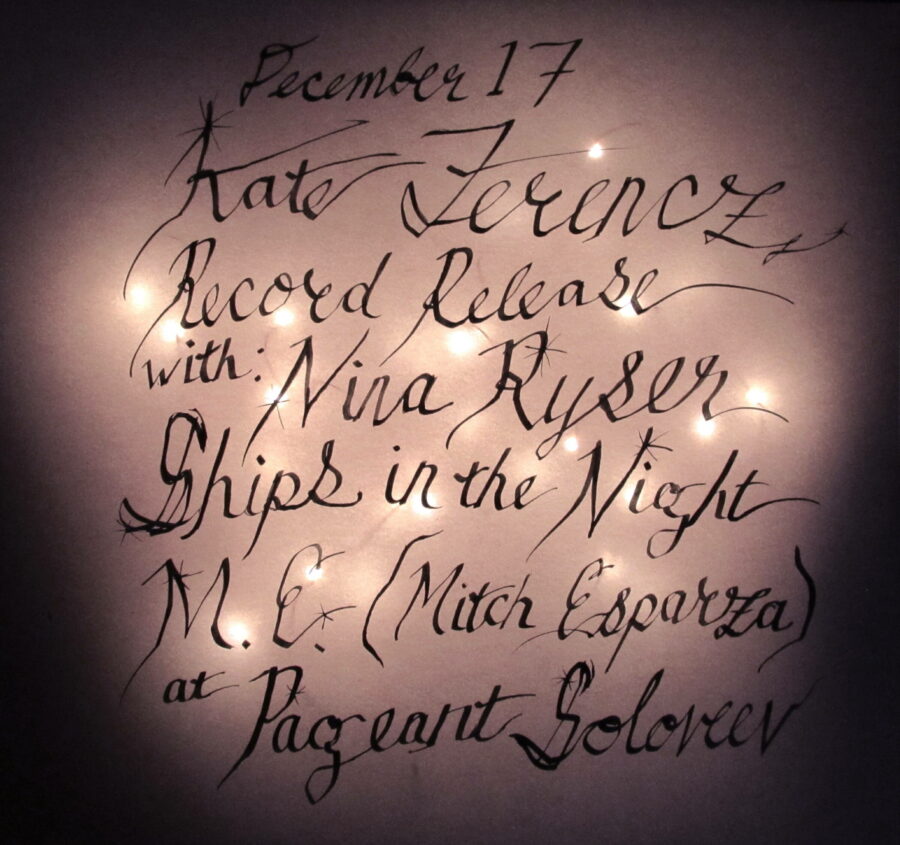 December 17
Kate Ferencz
Record Release
with: Nina Ryser
Ships in the Night
M. E. (Mitch Esparza)
at Pageant Soloveev